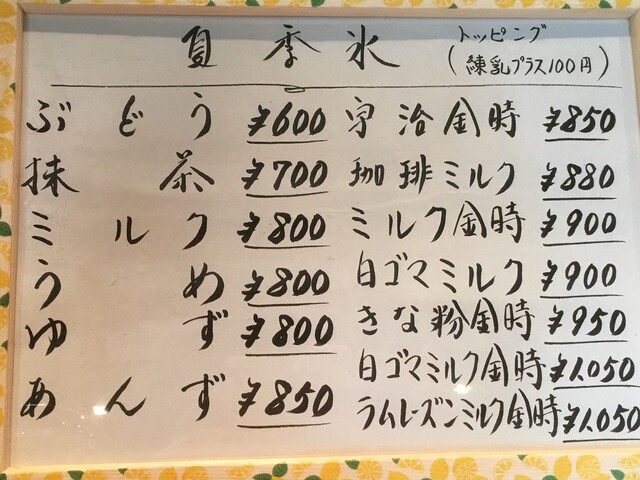 夏季氷
トッピング
(練乳プラス100円)
ぶどう ¥600
抹茶 ¥700
ミルク ¥800
うめ ¥800
ゆず ¥800
あんず ¥850
宇治金時 ¥850
珈琲ミルク ¥880
ミルク金時 ¥900
白ゴマミルク ¥900
きな粉金時 ¥950
白ゴマミルク金時 ¥1,050
ラムレーズンミルク金時 ¥1,050